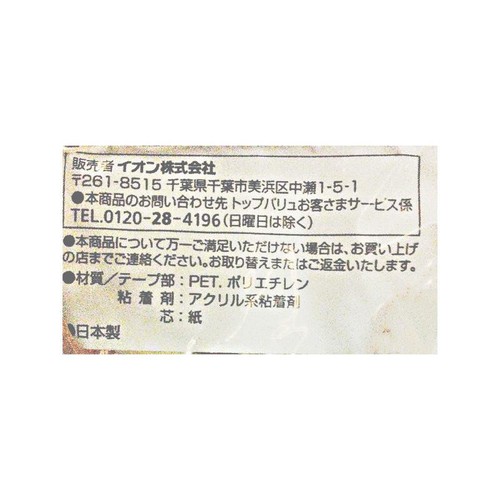 販売者 イオン株式会社
〒261-8515 千葉県千葉市美浜区中瀬1-5-1
●本商品のお問い合わせ先 トップバリュお客さまサービス係
TEL.0120-28-4196(日曜日は除く)
●本商品について万一ご満足いただけない場合は、お買い上げ
の店までご連絡ください。お取り替えまたはご返金いたします。
●材質/テープ部:PET.ポリエチレン
粘着剤:アクリル系粘着剤
芯:紙
●日本製